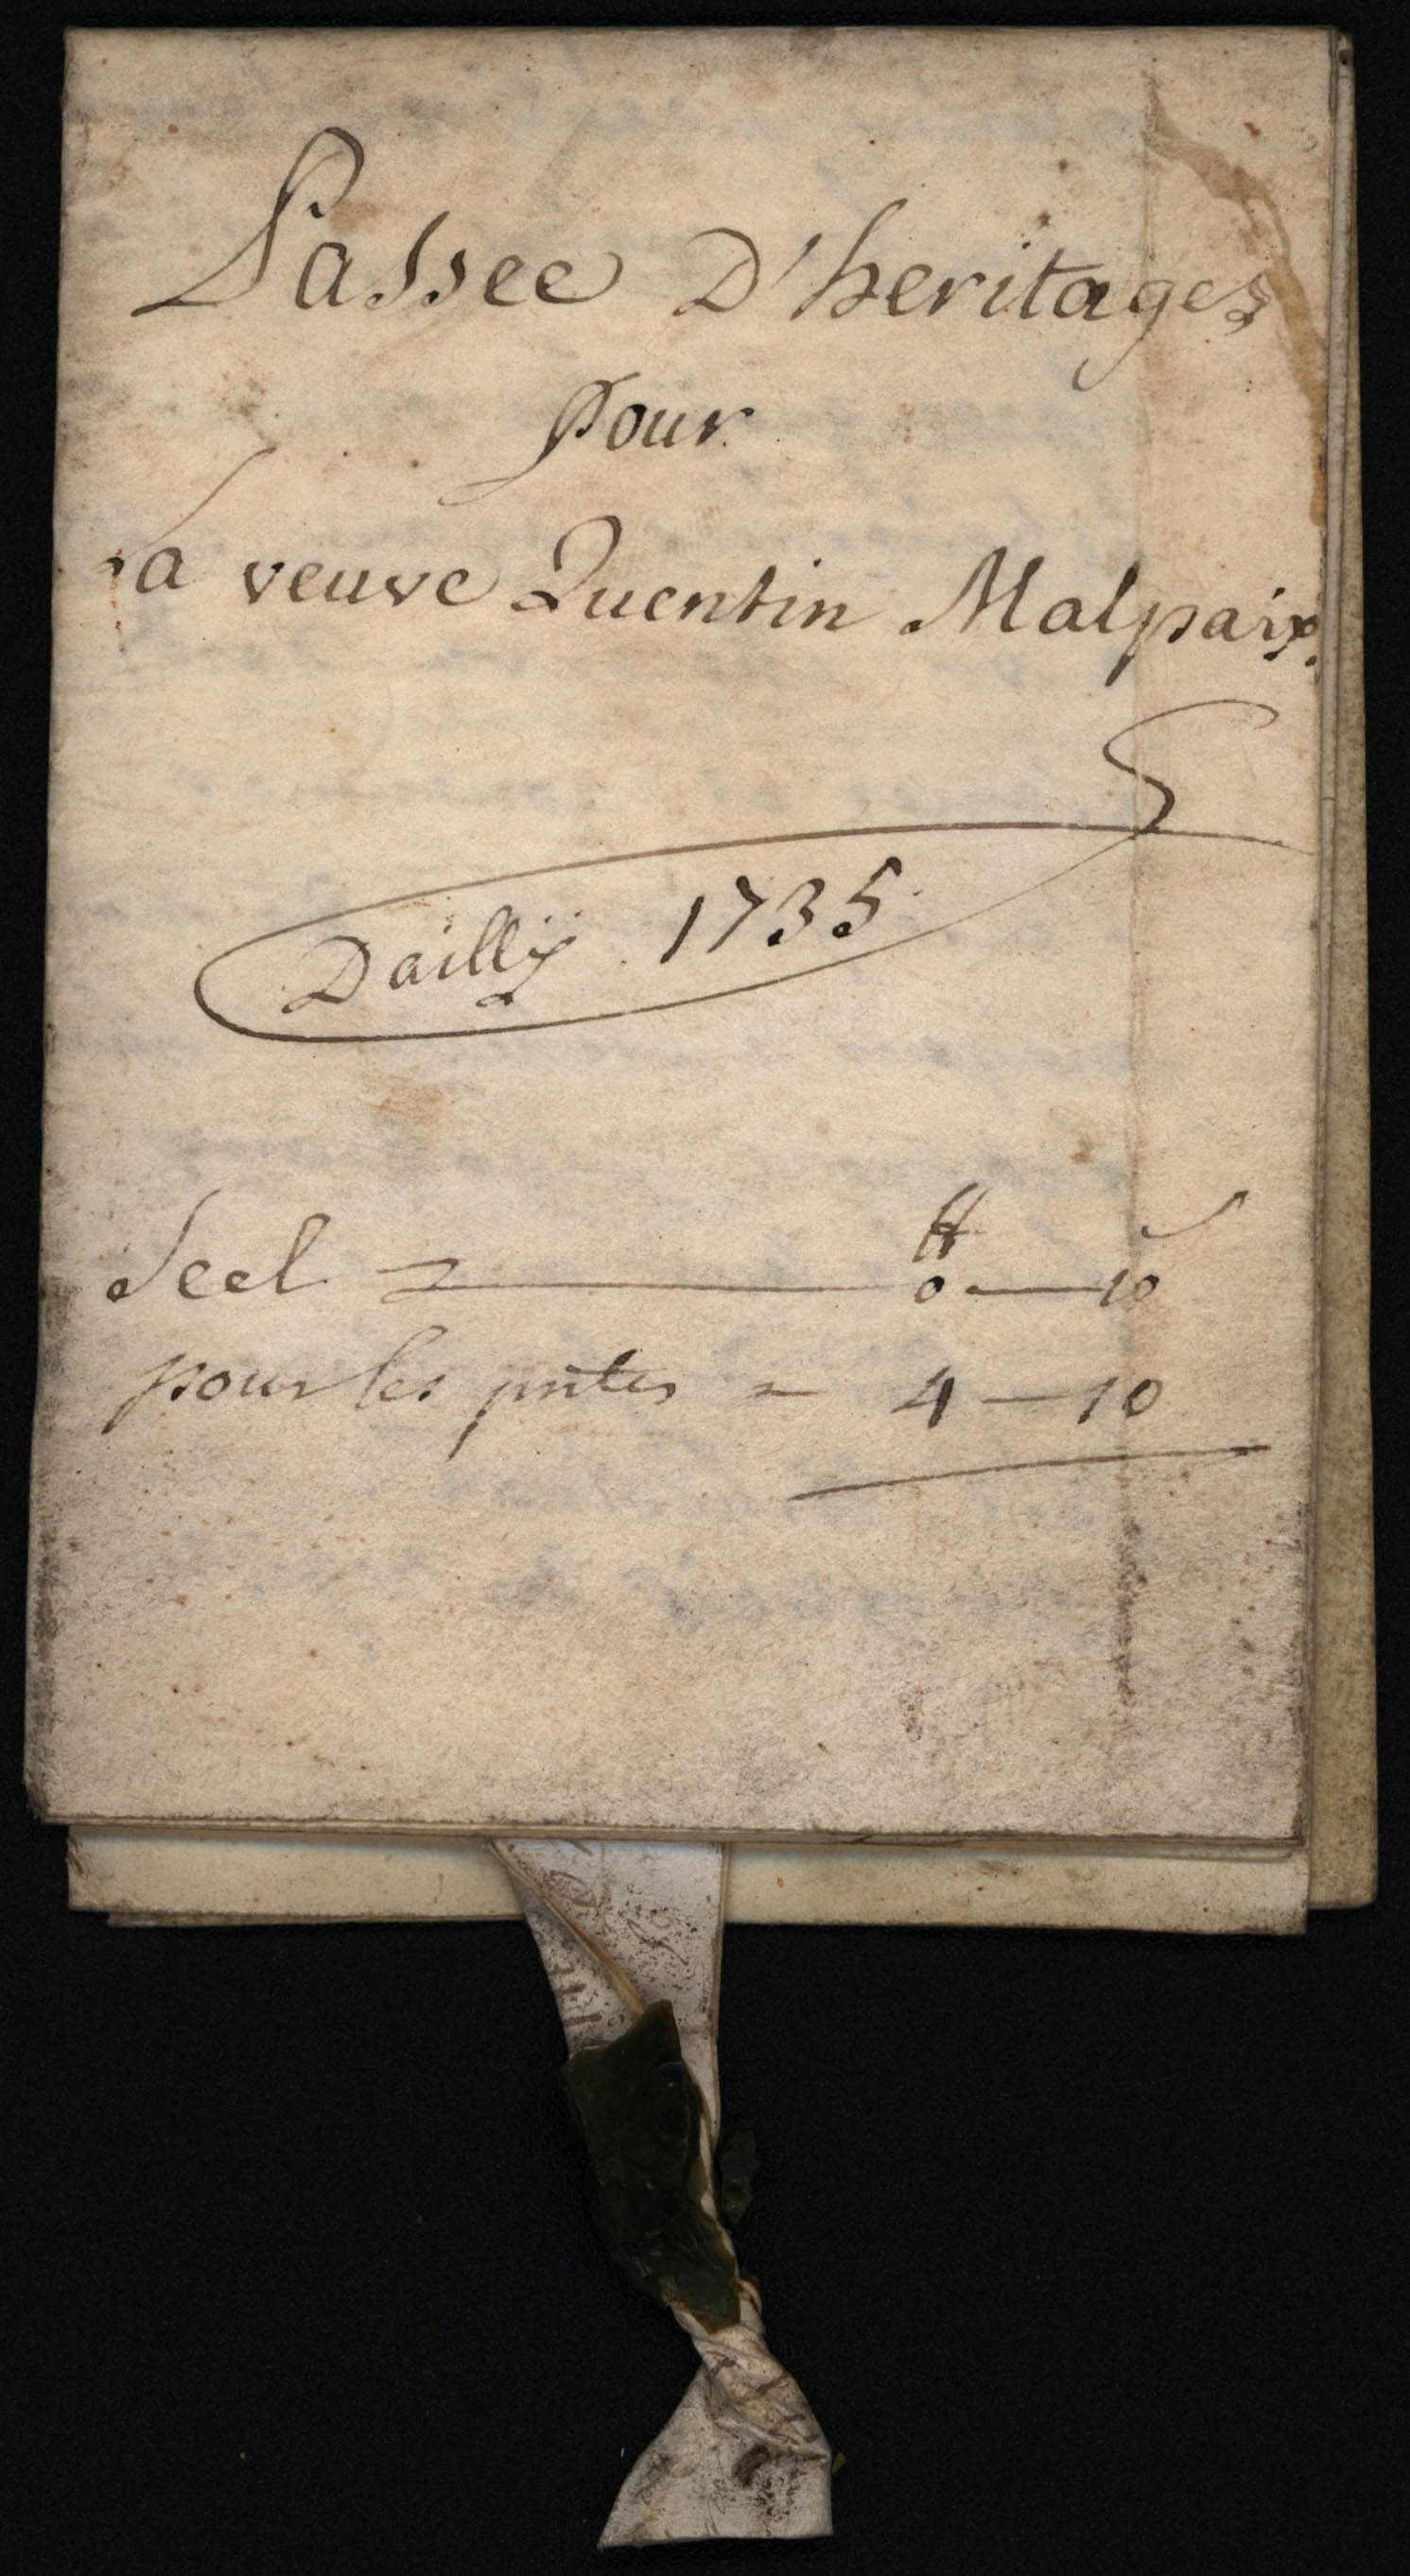 Passee D'heritages
pour
La veuve Quentin Malpaix.
Dailly 1735
H s
Seel = 0 — 10
pour les pntes = 4 — 10